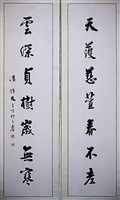 天護慈萱春不老
雲深貞樹歲無寒